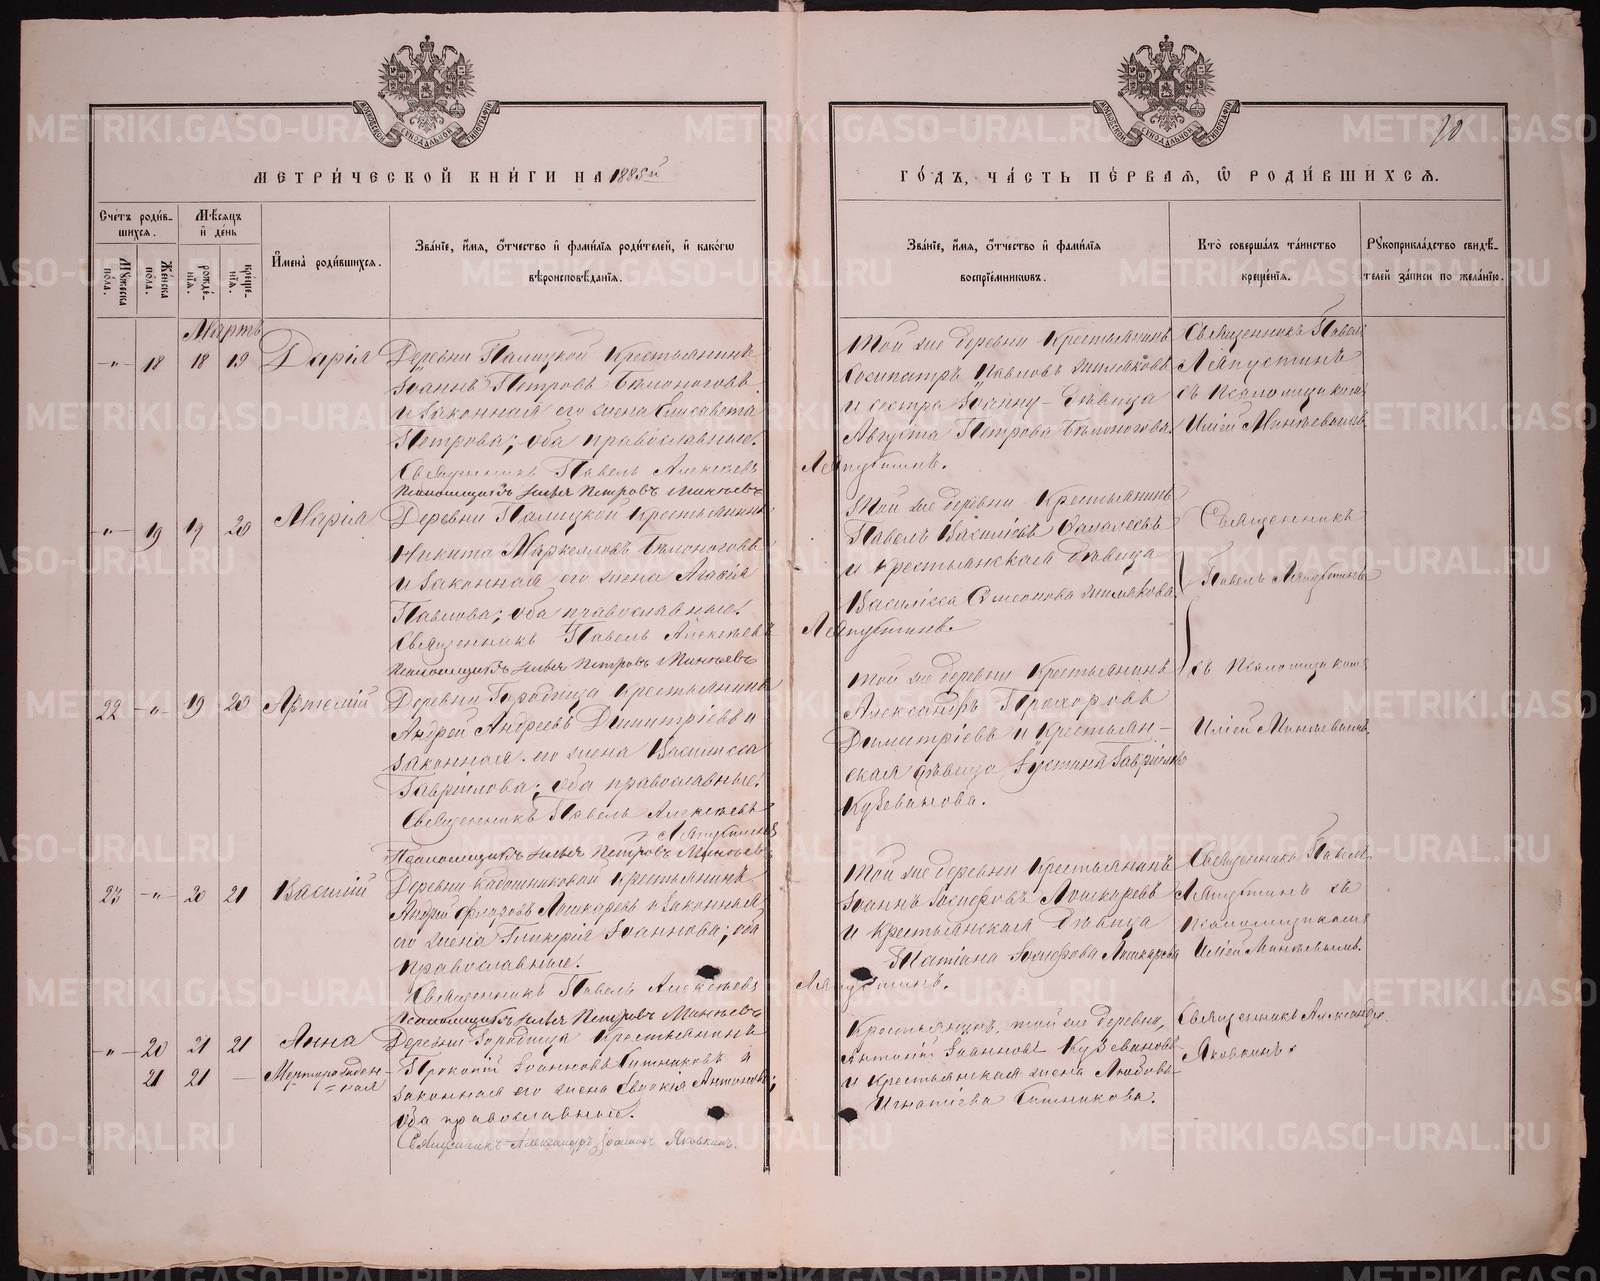 МЕТРИ́ЧЕСКОЙ КНИ́ГИ НА 1885й
ГО́ДЪ, ЧА́СТЬ ПЕ́РВАЯ, Ѡ РОДИ́ВШИХСЯ.
20
Сче́тъ роди́в-
шихся.
Му́жеска пола.
Же́нска пола.
Мѣсяцъ
и де́нь
рожде́-
нія.
креще́-
нія.
Имена̀ роди́вшихся.
Зва́нїе, и́мя, о҆́тчество и фами́лїя роди́телей, и како́гѡ
вѣроисповѣ́данїя.
Зва́нїе, и́мя, о҆́тчество и фами́лїя
воспрїе́мниковъ.
Кто̀ соверша́лъ та́инство
креще́нїя.
Рꙋкоприкла́дство свидѣ́-
телей за́писи по жела́нїю.
Мартъ
-„- 18 18 19 Дарія
Деревни Палицкой Крестьянинъ
Іоаннъ Петровъ Бѣлоноговъ
и законная его жена Елисавета
Петрова; оба православные.
Священникъ Павелъ Алексѣевъ Ляпустинъ.
Псаломщикъ Илья Петровъ Минѣевъ
Той же деревни Крестьянинъ
Сосипатръ Павловъ
и сестра дѣвица
Августа Петрова Бѣлоногова.
Священникъ Павелъ
Ляпустинъ
съ Псаломщикомъ
Иліей Минѣевымъ.
-„- 19 19 20 Марія
Деревни Палицкой Крестьянинъ
Никита Маркелловъ Бѣлоноговъ
и законная его жена Агафія
Павлова; оба православные.
Священникъ Павелъ Алексѣевъ Ляпустинъ.
Псаломщикъ Илья Петровъ Минѣевъ
Той же деревни Крестьянинъ
Павелъ Василіевъ
и крестьянская дѣвица
Василисса
Священникъ
Павелъ Ляпустинъ
съ Псаломщикомъ
Иліей Минѣевымъ.
22 -„- 19 20 Артемій
Деревни Городища Крестьянинъ
Андрей Андреевъ Димитріевъ и
законная его жена Василисса
Гавріилова; оба православные.
Священникъ Павелъ Алексѣевъ
Ляпустинъ
Псаломщикъ Илья Петровъ Минѣевъ
Той же деревни Крестьянинъ
Александръ Прохоровъ
Димитріевъ и крестьян-
ская дѣвица Іустина Гавріилова
Кузеванова.
23 -„- 20 21 Василій
Деревни Кадошниковой Крестьянинъ
Андрей Лошкаревъ и законная
его жена Гликерія Іоаннова; оба
православные.
Священникъ Павелъ Алексѣевъ Ляпустинъ.
Псаломщикъ Илья Петровъ Минѣевъ
Той же деревни Крестьянинъ
Іоаннъ Іосифовъ Лошкаревъ
и крестьянская дѣвица
Татіана Іосифова Лошкарева
Священникъ Павелъ
Ляпустинъ съ
псаломщикомъ
Иліей Минѣевымъ.
-„- 20 21 21 Анна
21 21 — Мертворожден-
ная
Деревни Городища Крестьянинъ
Прокопій Іоанновъ Ситниковъ и
законная его жена Евдокія Антонова;
оба православные.
Священникъ Александръ Іоанновъ Яковкинъ.
Крестьянинъ той же деревни,
Антоній Іоанновъ Кузевановъ
и крестьянская жена Любовь
Игнатіева Ситникова.
Священникъ Александръ
Яковкинъ.
METRIKI.GASO-URAL.RU